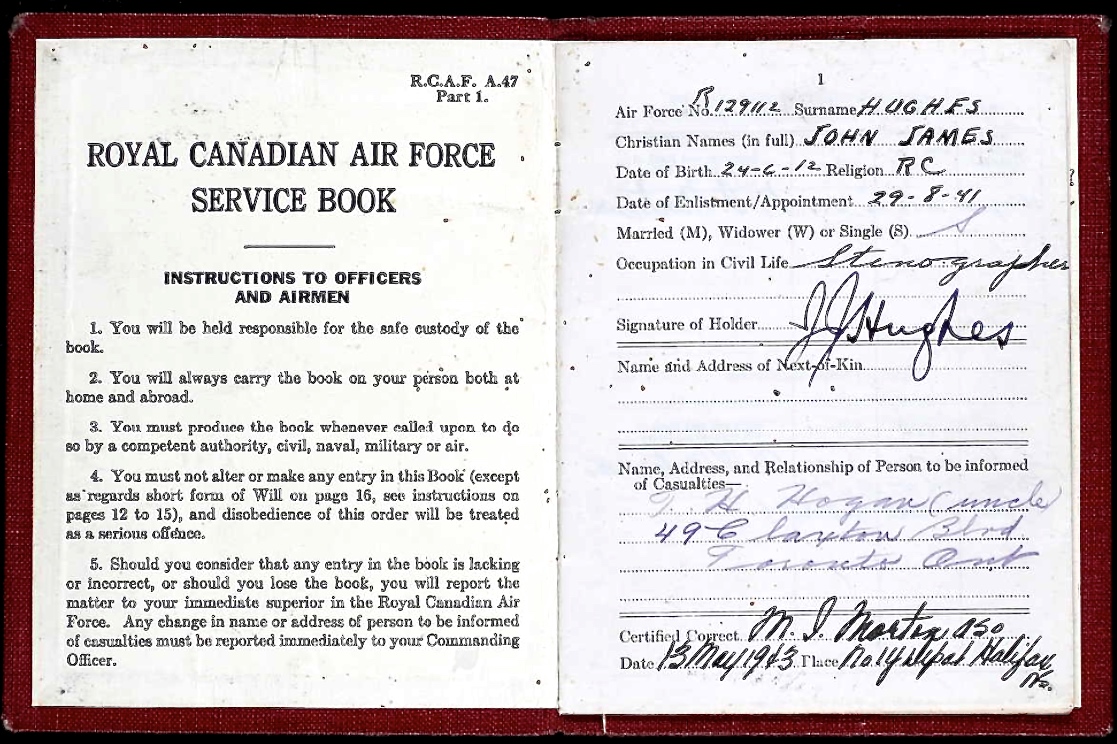 R.C.A.F. A.47
Part 1.
ROYAL CANADIAN AIR FORCE
SERVICE BOOK
INSTRUCTIONS TO OFFICERS
AND AIRMEN
1. You will be held responsible for the safe custody of the
book.
2. You will always carry the book on your person both at
home and abroad.
3. You must produce the book whenever called upon to do
so by a competent authority, civil, naval, military or air.
4. You must not alter or make any entry in this Book (except
as regards short form of Will on page 16, see instructions on
pages 12 to 15), and disobedience of this order will be treated
as a serious offence.
5. Should you consider that any entry in the book is lacking
or incorrect, or should you lose the book, you will report the
matter to your immediate superior in the Royal Canadian Air
Force. Any change in name or address of person to be informed
of casualties must be reported immediately to your Commanding
Officer.
1
Air Force No. R129112 Surname HUGHES
Christian Names (in full) JOHN JAMES
Date of Birth 24-6-12 Religion RC
Date of Enlistment/Appointment 29-8-41
Married (M), Widower (W) or Single (S) S
Occupation in Civil Life Stenographer
Signature of Holder JJHughes
Name and Address of Next-of-Kin
Name, Address, and Relationship of Person to be informed
of Casualties—
T. H. Hogan (uncle
49 Claxton Blvd
Toronto Ont
Certified Correct M. I. ASO
Date 13 May 1943 Place No 1Y Depot Halifax
NS.